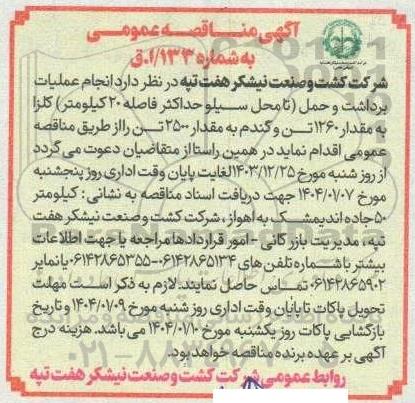 آگهی مناقصه عمومی
به شماره ۱/۱۳۳.ق
شرکت کشت و صنعت نیشکر هفت تپه در نظر دارد انجام عملیات
برداشت و حمل (تا محل سیلو حداکثر فاصله ۲۰ کیلومتر) کلزا
به مقدار ۱۲۶۰ تن و گندم به مقدار ۲۵۰۰ تن را از طریق مناقصه
عمومی اقدام نماید در همین راستا از متقاضیان دعوت می گردد
از روز شنبه مورخ ۱۴۰۳/۱۲/۲۵ لغایت پایان وقت اداری روز پنجشنبه
مورخ ۱۴۰۴/۰۱/۰۷ جهت دریافت اسناد مناقصه به نشانی : کیلومتر
۵۰ جاده اندیمشک به اهواز، شرکت کشت و صنعت نیشکر هفت
تپه، مدیریت بازرگانی - امور قراردادها مراجعه یا جهت اطلاعات
بیشتر با شماره تلفن های ۰۶۱۴۲۸۶۵۱۳۴-۰۶۱۴۲۸۶۵۳۵۵ یا نمابر
۰۶۱۴۲۸۶۵۹۰۲ تماس حاصل نمایند. لازم به ذکر است مهلت
تحویل پاکات تا پایان وقت اداری روز شنبه مورخ ۱۴۰۴/۰۱/۰۹ و تاریخ
بازگشایی پاکات روز یکشنبه مورخ ۱۴۰۴/۰۱/۱۰ می باشد. هزینه درج
آگهی بر عهده برنده مناقصه خواهد بود.
روابط عمومی شرکت کشت و صنعت نیشکر هفت تپه